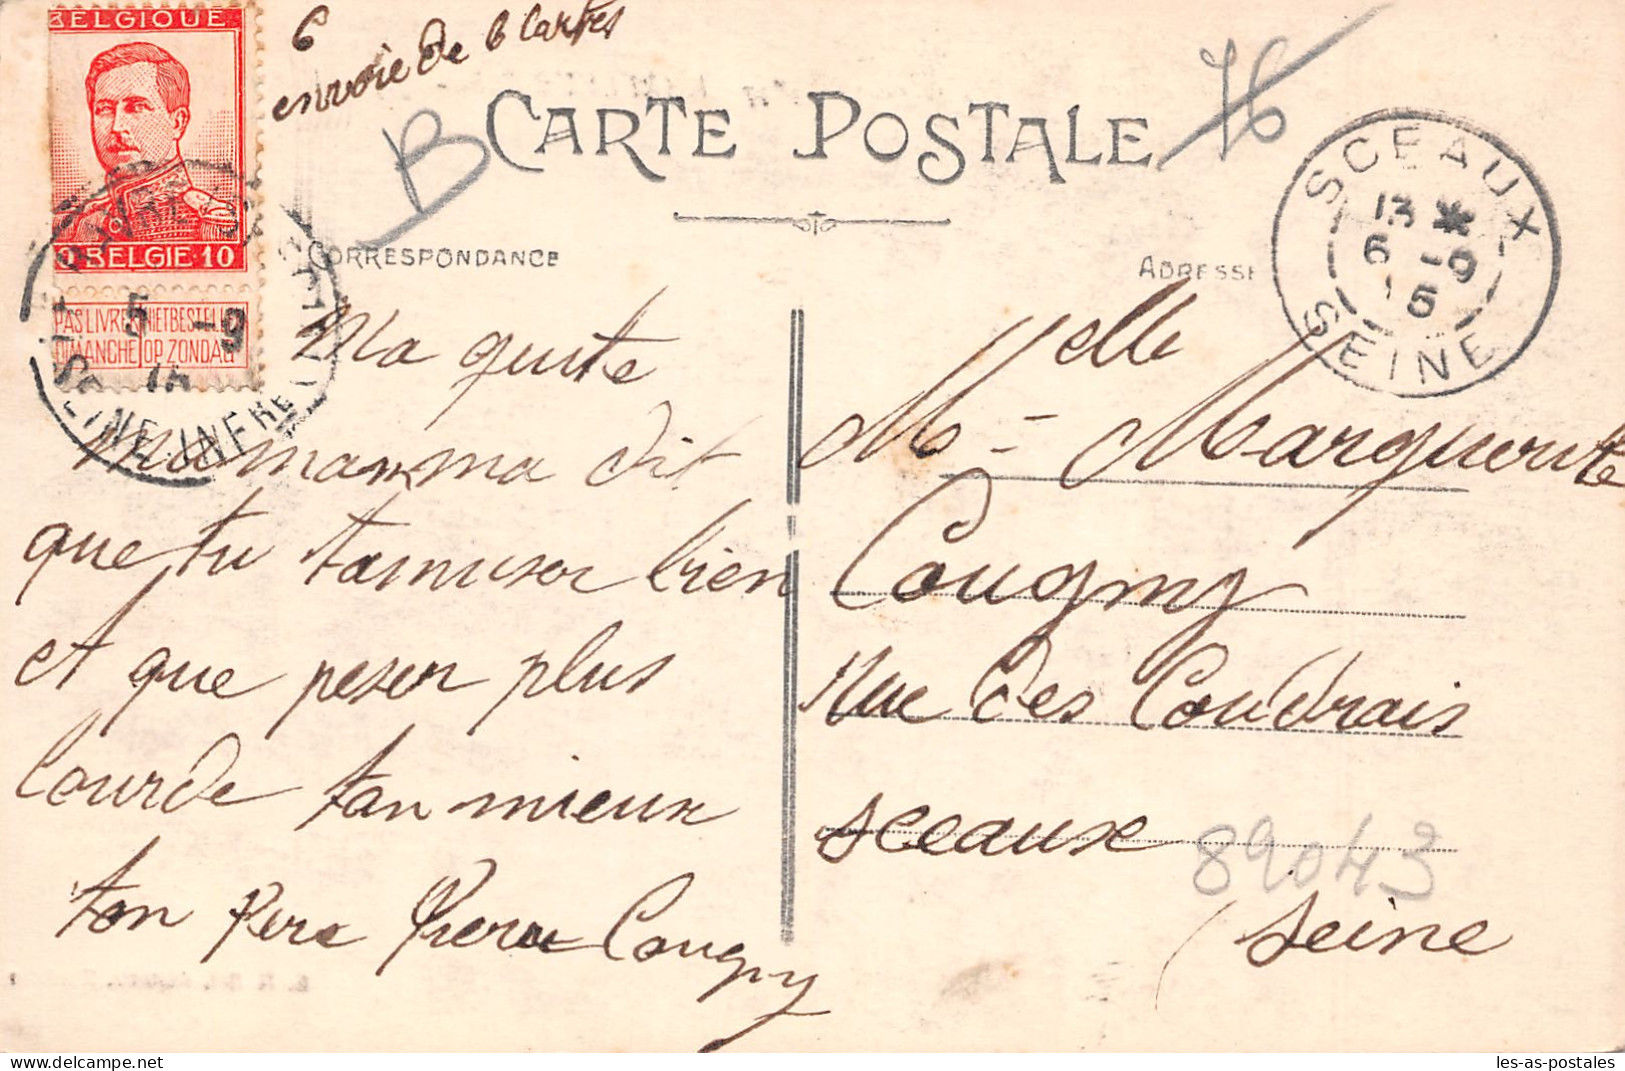 BELGIQUE
10 BELGIE 10
PAS LIVRER NIET BESTELLEN
DIMANCHE OP ZONDAG
5 -9
15
STE ADRESSE
SEINE INFRE
6
envoie de 6 Cartes
B
76
CARTE POSTALE
SCEAUX
13 *
6 -9
15
SEINE
CORRESPONDANCE
ADRESSE
Ma
mamma dit
que tu tamuser bien
et que peser plus
lourde tan mieux
ton Pere Pierre Cougny
Melle
Marguerite
Cougny
Rue des Coudrais
sceaux
seine
89043
les-as-postales